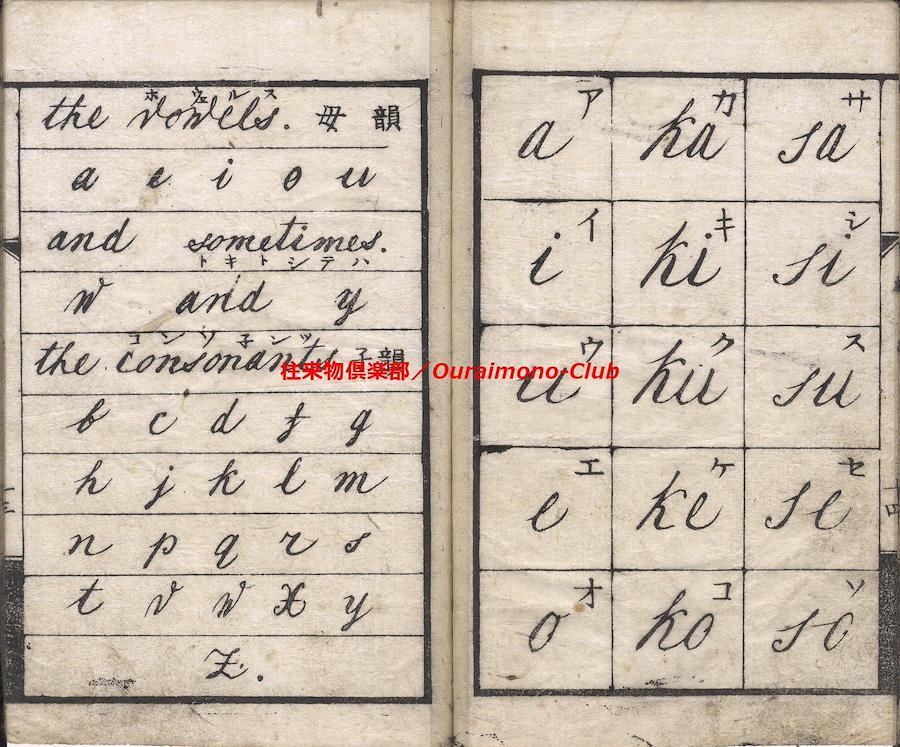 ホウェルス
the vowels. 母韻
a e i o u
and sometimes.
トキトシテハ
w and y
コンソ子ンツ
the consonants 子韻
b c d f g
h j k l m
n p q r s
t v w x y
z.
ア カ サ
a ka sa
イ キ シ
i ki si
ウ ク ス
u ku su
エ ケ セ
e ke se
オ コ ソ
o ko so
往来物倶楽部／Ouraimono-Club